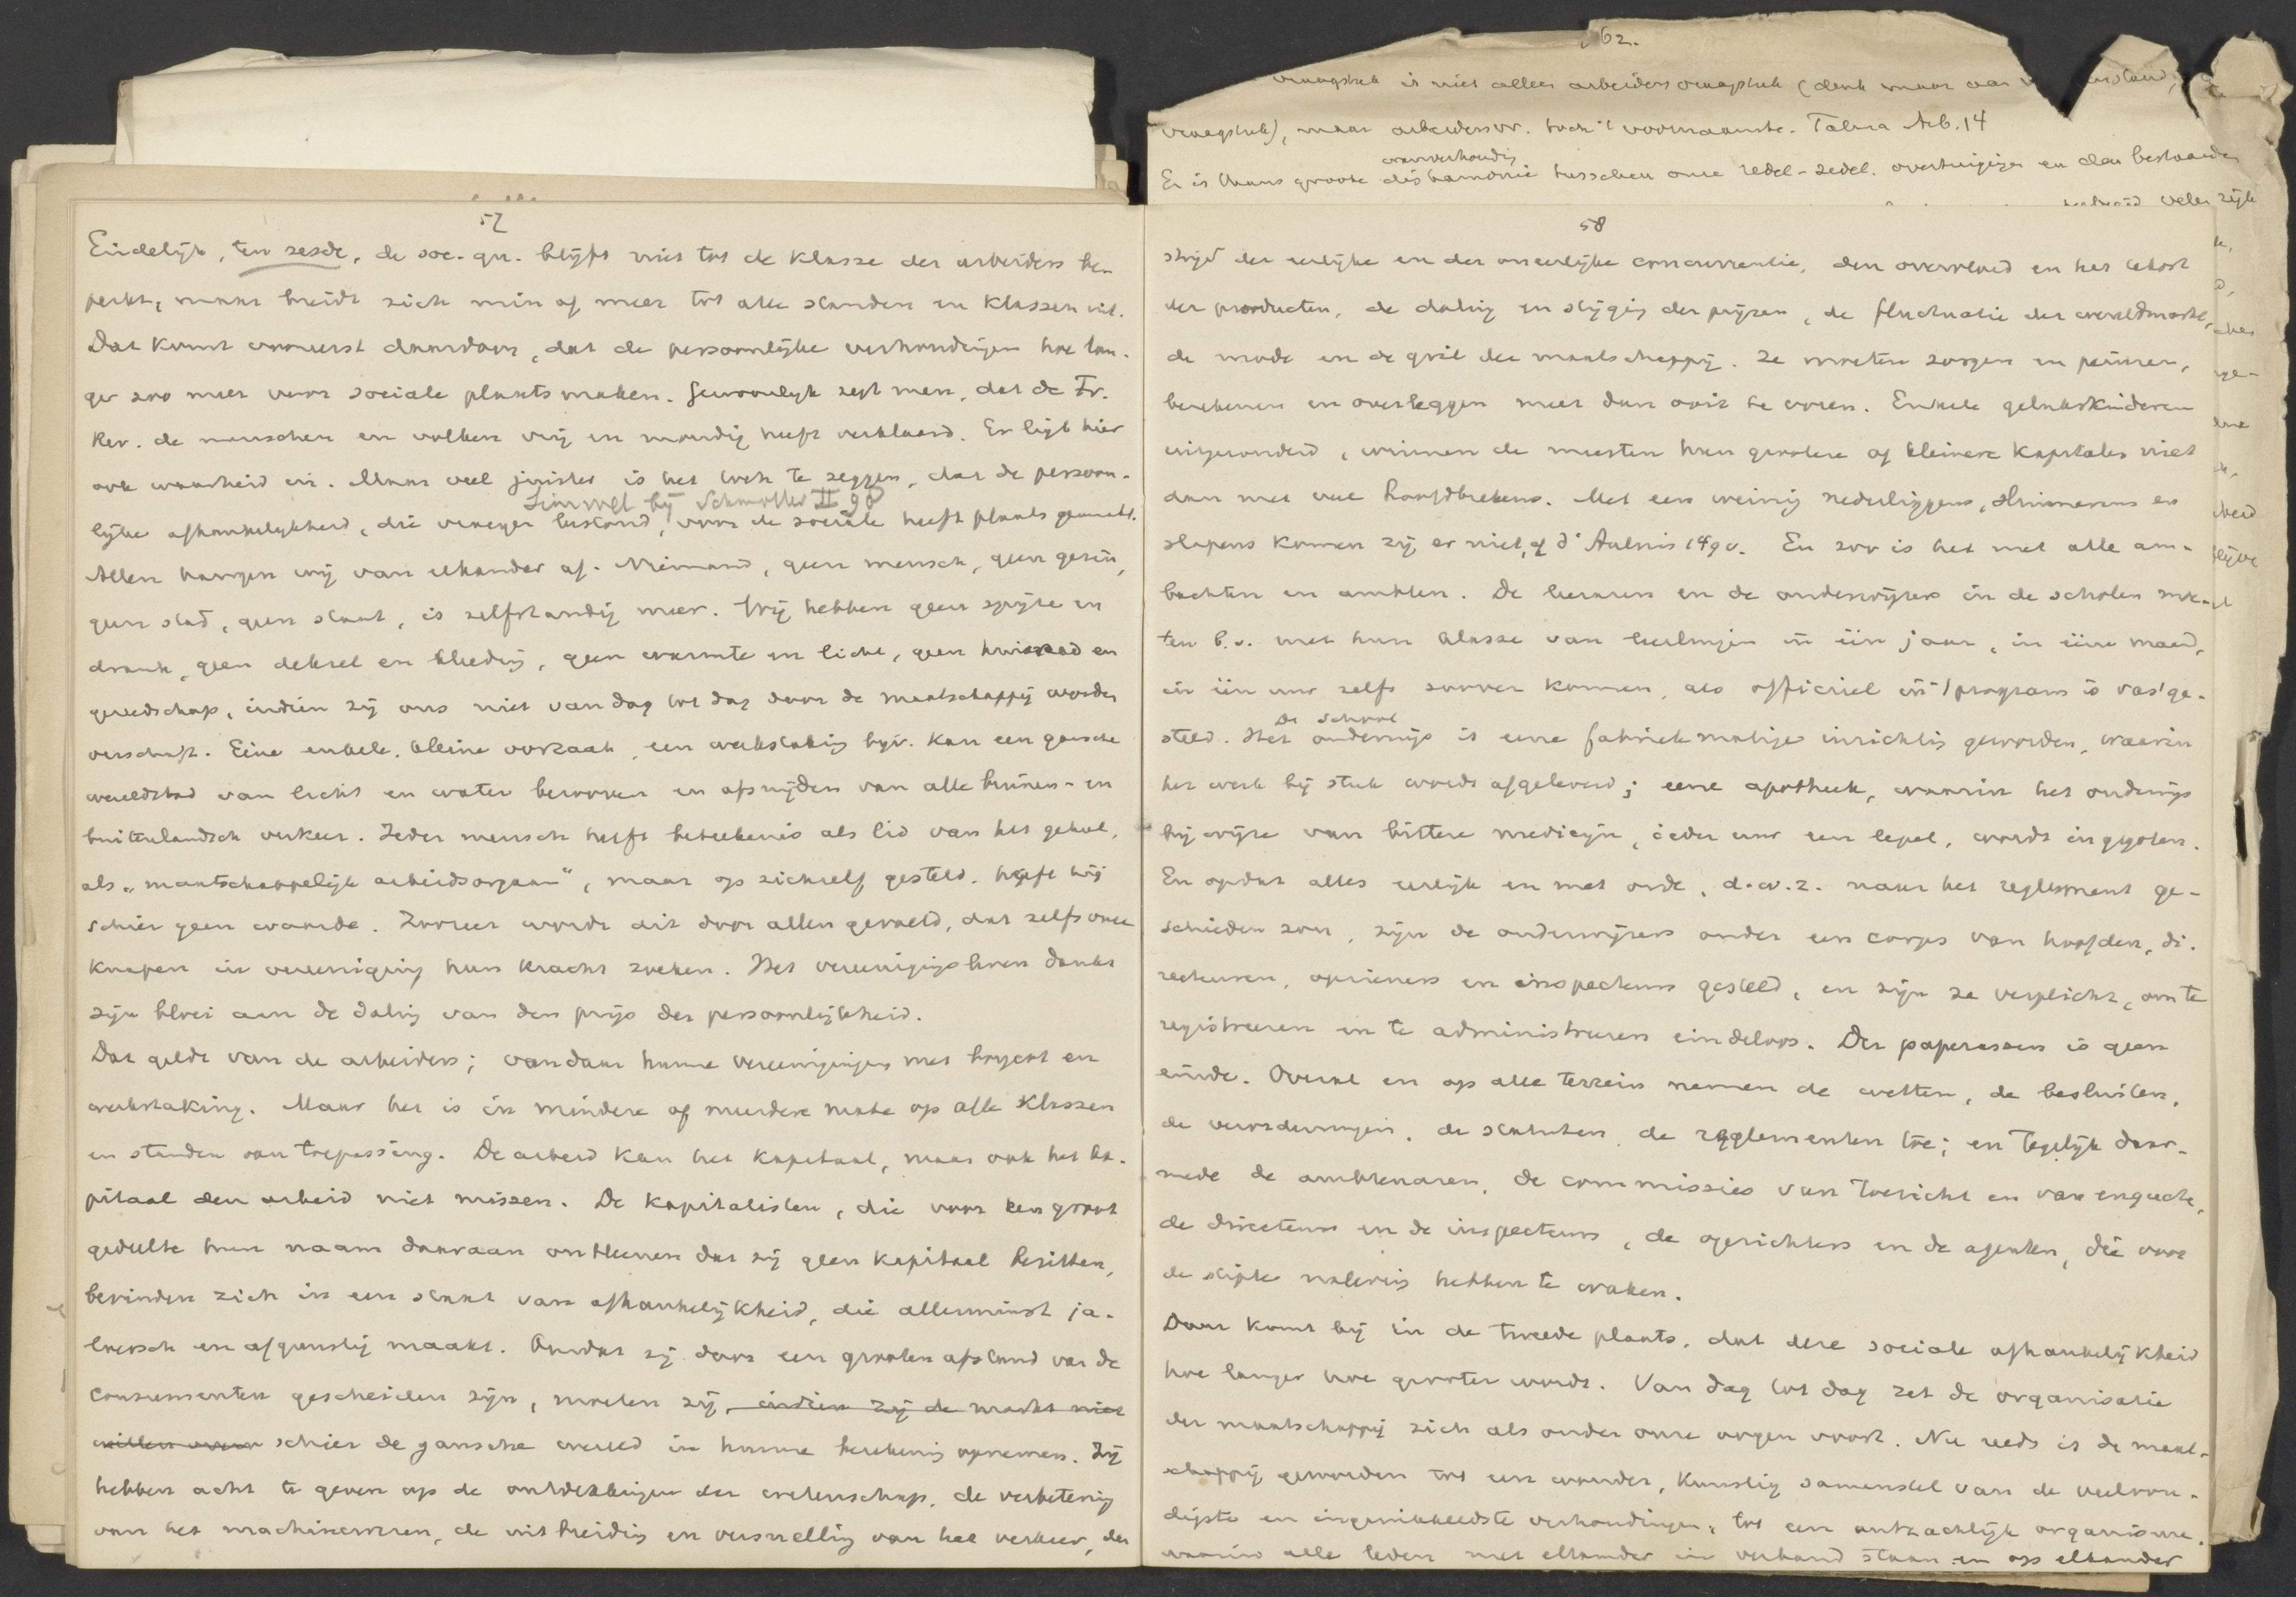 62.
vraagstuk is niet alleen arbeidersvraagstuk (denk maar aan
vraagstuk), maar arbeidersvr. toch 't voornaamste. Talma Arb. 14
wanverhoudig
Er is thans groote disharmonie tusschen onze redel-zedel. overtuigingen en den bestaanden
57
Eindelijk, ten zesde, de soc. qu. blijft niet tot de klasse der arbeiders be-
perkt, maar breidt zich min of meer tot alle standen en klassen uit.
Dat komt vooreerst daardoor, dat de persoonlijke verhoudingen hoe lan-
ger zoo meer voor sociale plaats maken. Gewoonlijk zegt men, dat de Fr.
Rev. de menschen en volken vrij en mondig heeft verklaard. Er ligt hier
ook waarheid in. Maar veel juister is het toch te zeggen, dat de persoon-
Simmel bij Schmoller II 98
lijke afhankelijkheid, die vroeger bestond, voor de sociale heeft plaats gemaakt.
Allen hangen wij van elkander af. Niemand, geen mensch, geen gezin,
geen stad, geen staat, is zelfstandig meer. Wij hebben geen spijze en
drank, geen deksel en kleeding, geen warmte en licht, geen huisraad en
gereedschap, indien zij ons niet van dag tot dag door de maatschappij worden
verschaft. Eene enkele, kleine oorzaak, een werkstaking bijv. kan een gansche
wereldstad van licht en water berooven en afsnijden van alle binnen- en
buitenlandsch verkeer. Ieder mensch heeft beteekenis als lid van het geheel,
als „maatschappelijk arbeidsorgaan", maar op zichzelf gesteld, heeft hij
schier geen waarde. Zoozeer wordt dit door allen gevoeld, dat zelfs onze
knapen in vereeniging hun kracht zoeken. Het vereenigingsleven dankt
zijn bloei aan de daling van den prijs der persoonlijkheid.
Dat geldt van de arbeiders; vandaar hunne vereenigingen met boycot en
werkstaking. Maar het is in mindere of meerdere mate op alle klassen
en standen van toepassing. De arbeid kan het kapitaal, maar ook het ka-
pitaal den arbeid niet missen. De kapitalisten, die voor een groot
gedeelte hun naam daaraan ontleenen dat zij geen kapitaal bezitten,
bevinden zich in een staat van afhankelijkheid, die allerminst ja-
loersch en afgunstig maakt. Omdat zij door een grooten afstand van de
consumenten gescheiden zijn, moeten zij, indien zij de markt niet
willen schier de gansche wereld in hunne berekening opnemen. Zij
hebben acht te geven op de ontdekkingen der wetenschap, de verbetering
van het machinewezen, de uitbreiding en versnelling van het verkeer, den
58
strijd der eerlijke en der oneerlijke concurrentie, den overvloed en het tekort
der producten, de daling en stijging der prijzen, de fluctuatie der wereldmarkt,
de mode en de gril der maatschappij. Ze moeten zorgen en peinzen,
berekenen en overleggen meer dan ooit te voren. Enkele gelukskinderen
uitgezonderd, winnen de meesten hun grootere of kleinere kapitalen niet
dan met veel hoofdbrekens. Met een weinig nederliggens, sluimerens en
slapens komen zij er niet, cf d'Aulnis 149v. En zoo is het met alle am-
bachten en ambten. De leeraren en de onderwijzers in de scholen moe-
ten b.v. met hun klasse van leerlingen in één jaar, in ééne maand,
in één uur zelfs zoover komen, als officieel in 't program is vastge-
De school
steld. Het onderwijs is eene fabriekmatige inrichting geworden, waarin
het werk bij stuk wordt afgeleverd; eene apotheek, waarin het onderwijs
bij wijze van bittere medicijn, ieder uur een lepel, wordt ingegoten.
En opdat alles eerlijk en met orde, d.w.z. naar het reglement ge-
schieden zou, zijn de onderwijzers onder een corps van hoofden, di-
recteuren, opzieners en inspecteurs gesteld, en zijn ze verplicht, om te
registreeren en te administreeren eindeloos. Der paperassen is geen
einde. Overal en op alle terrein nemen de wetten, de besluiten,
de verordeningen, de statuten, de reglementen toe; en tegelijk daar-
mede de ambtenaren, de commissies van toezicht en van enquete,
de directeurs en de inspecteurs, de oprichters en de agenten, die voor
de stipte naleving hebben te waken.
Daar komt bij in de tweede plaats, dat deze sociale afhankelijkheid
hoe langer hoe grooter wordt. Van dag tot dag zet de organisatie
der maatschappij zich als onder onze oogen voort. Nu reeds is de maat-
schappij geworden tot een wonder, kunstig samenstel van de veelvou-
digste en ingewikkeldste verhoudingen, tot een ontzachlijk organisme,
waarin alle leden met elkander in verband staan en op elkander